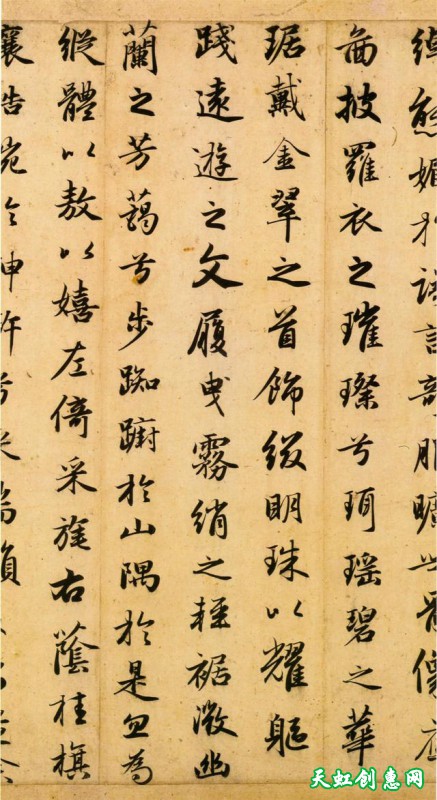 綽態媚於語言奇服曠世骨像應
啚披羅衣之璀璨兮珥瑤碧之華
琚戴金翠之首飾綴明珠以耀軀
踐遠遊之文履曳霧綃之輕裾微幽
蘭之芳藹兮步踟躕於山隅於是忽焉
縱體以敖以嬉左倚采旄右蔭桂旗
神滸兮
天虹创惠网